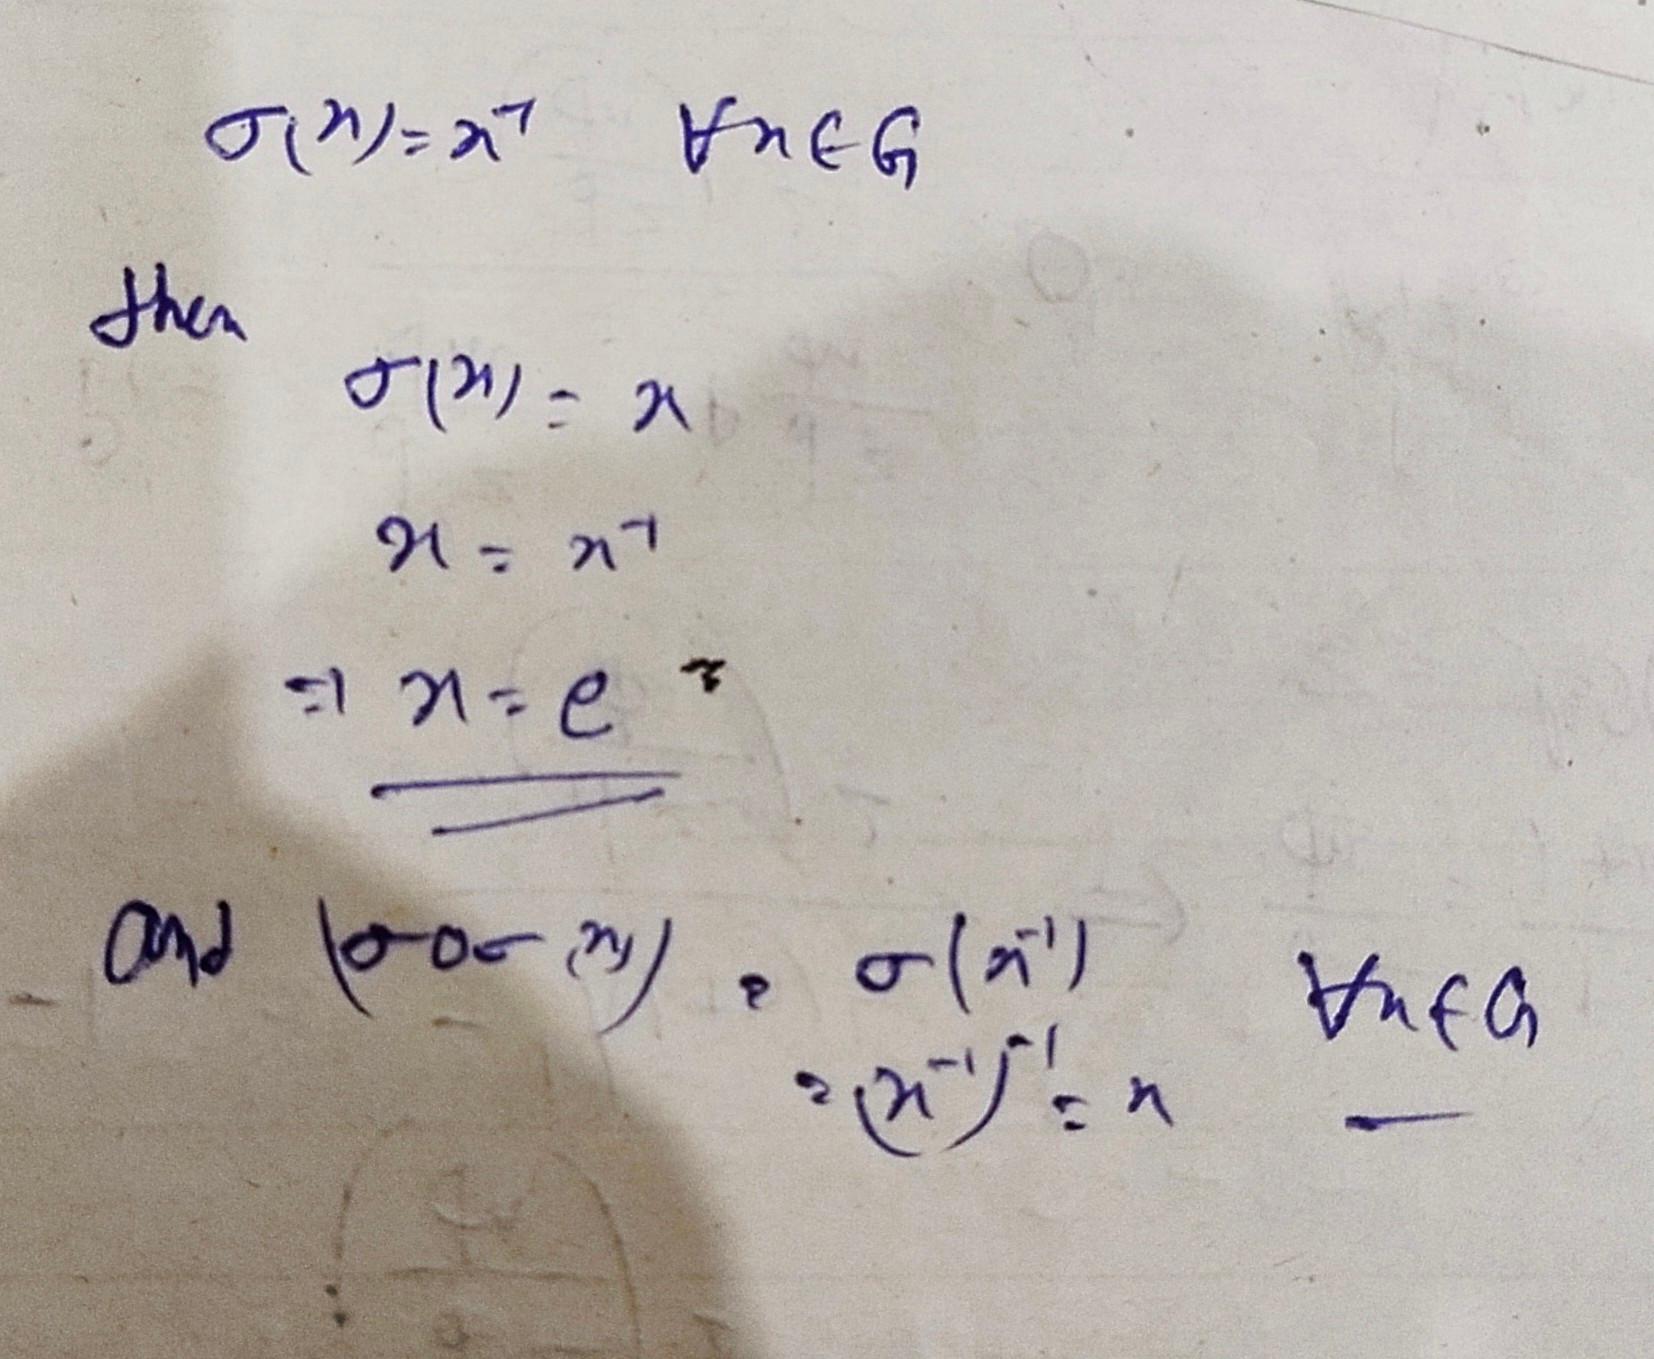 σ(x) = x⁻¹ ∀x∈G
then
σ(x) = x
x = x⁻¹
⇒ x = e
and (σoσ(x)) = σ(x⁻¹) ∀x∈G
= (x⁻¹)⁻¹ = x